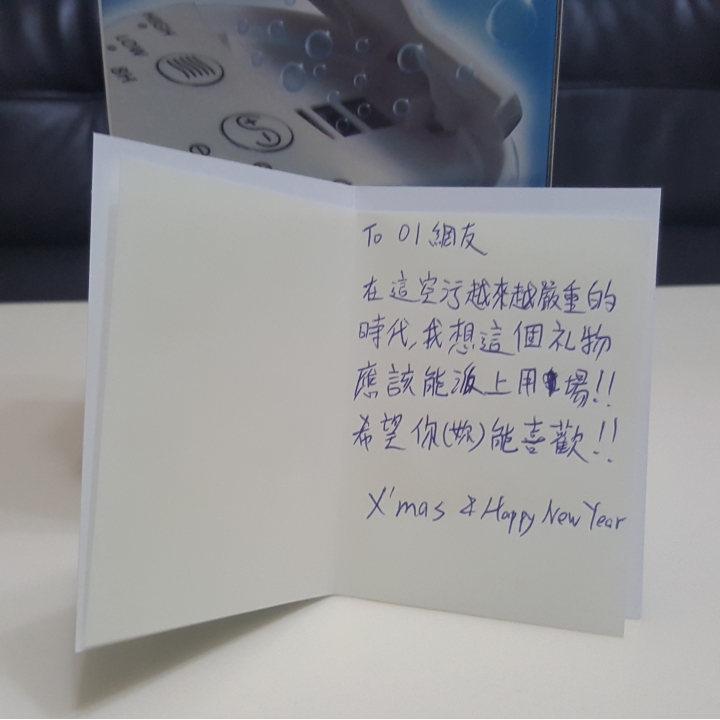 HIGH
LOW
8H
To 01 網友
在這空污越來越嚴重的
時代,我想這個礼物
應該能派上用場!!
希望你(妳)能喜歡!!
X'mas & Happy New Year